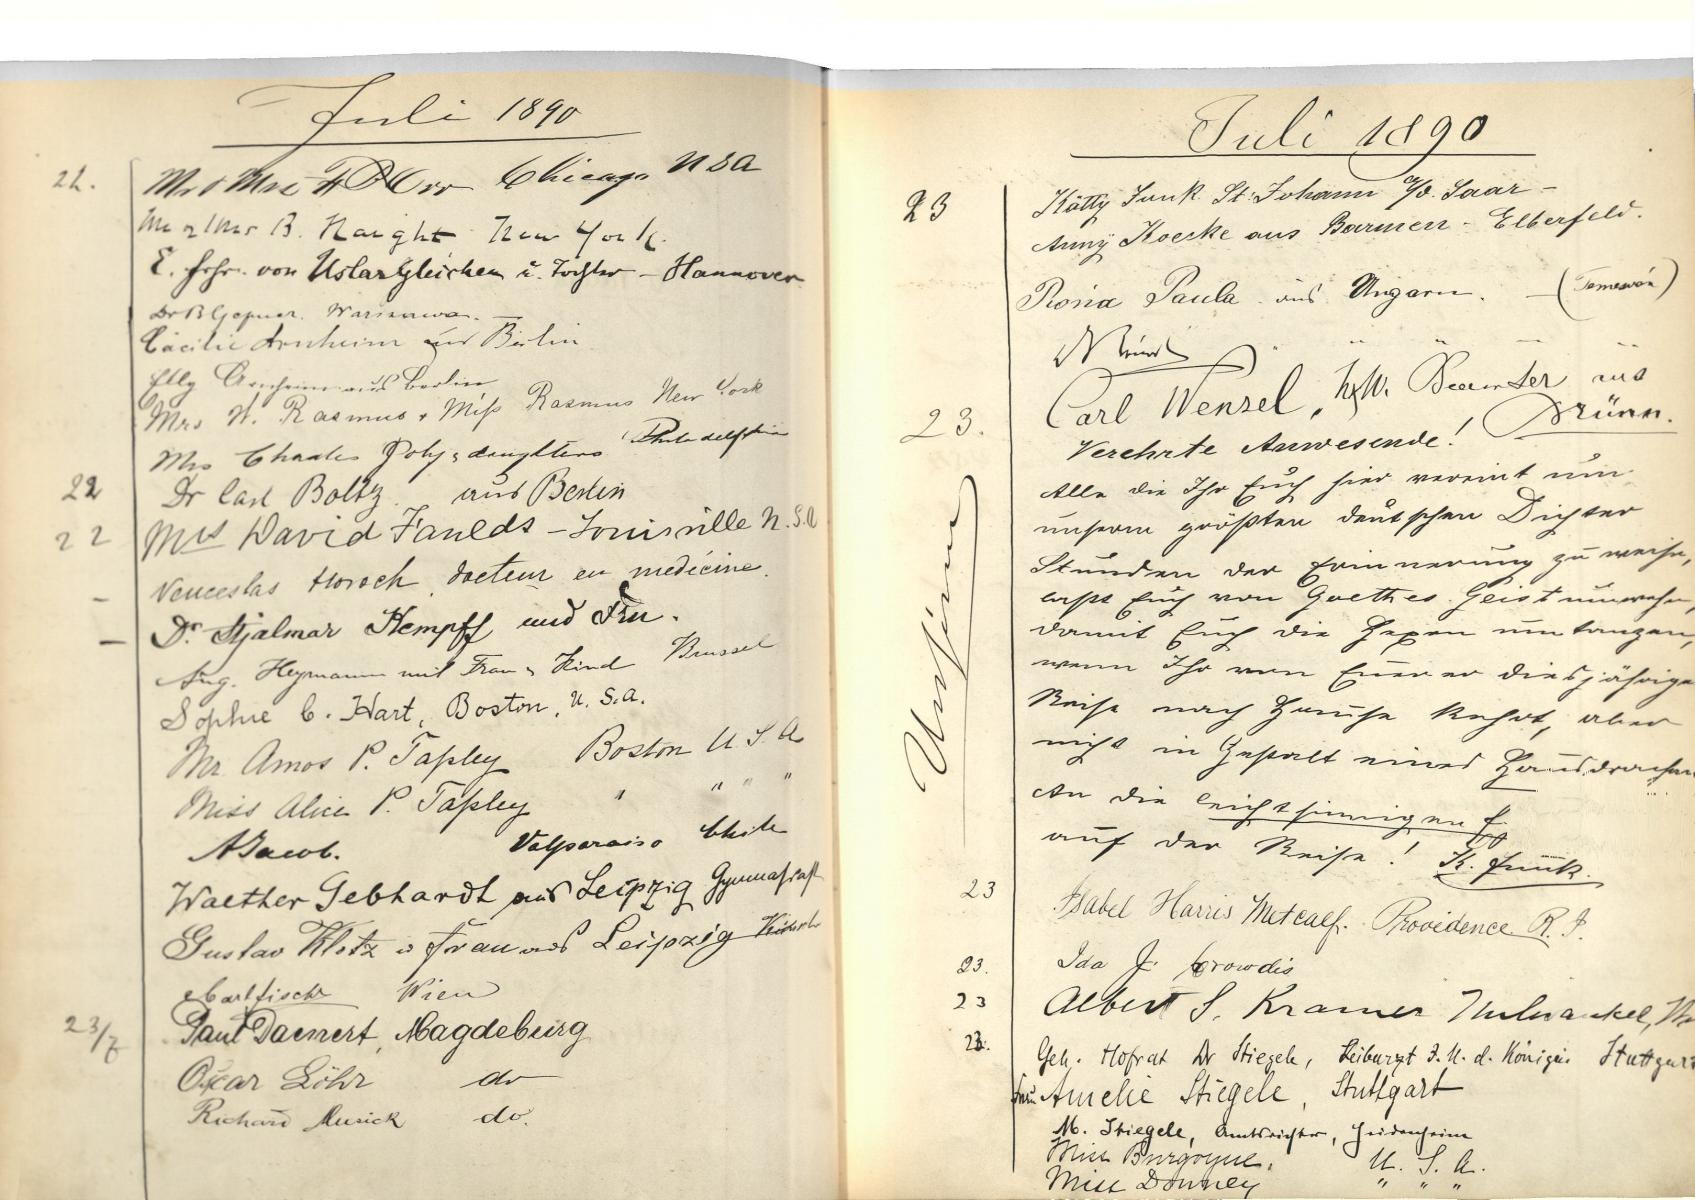 Juli 1890
Mr & Mrs Orr Chicago USA
Mr & Mrs B. Haight New York.
E. Frhr. von Uslar Gleichen u. Tochter – Hannover
Dr B Warszawa.
Cäcilie Arnheim aus Berlin
Elly Arnheim aus Berlin
Mrs W. Rasmus & Miss Rasmus New York
Mrs Charles & daughters Philadelphia
22 Dr Carl Boltz aus Berlin
22 Mrs David Faulds – Louisville U.S.A
– Venceslas Horoch, docteur en medécine.
– Dr. Hjalmar Kempff und Fru.
Aug. Heymann mit Frau & Kind Brussel
Sophie C. Hart, Boston, U.S.A.
Mr Amos P. Tapley Boston U S A
Miss Alice P. Tapley " " "
A Jacob. Valparaiso Chile
Walther Gebhardt aus Leipzig
Gustav Klotz u Frau aus Leipzig
Carl Fischer Wien
23/7 Paul Daenert, Magdeburg
Oscar Löhr do
Richard Musick do.
Juli 1890
23 Kätty Funk. St: Johann a/d. Saar –
Änny Koecke aus Barmen – Elberfeld.
Rosia Paula aus Ungarn. – (Temesvár)
23. Carl Wenzel, Beamter aus
Brünn.
Verehrte Anwesende!
Alle die Ihr Euch hier vereint um
unserm größten deutschen Dichter
Stunden der Erinnerung zu weihn,
laßt Euch von Goethes Geist umwehn,
damit Euch die Hexen umtanzen,
wenn Ihr von Eurer diesjährigen
Reise nach Hause kehrt, aber
nicht in Gestalt eines Hausdrachen
An die leichtsinnigen
auf der Reise! K. Funk.
Unsinn
23 Isabel Harris Metcalf. Providence. R. I.
23. Ida J. Crowdis
23 Albert S. Kramer
23. Geh. Hofrat Dr Stiegele, Leibarzt I. M. d. Königin Stuttgart
Frau Amelie Stiegele, Stuttgart
M. Stiegele, Amtsrichter, Heidenheim
Miss Burgoyne, U. S. A.
Miss " " "